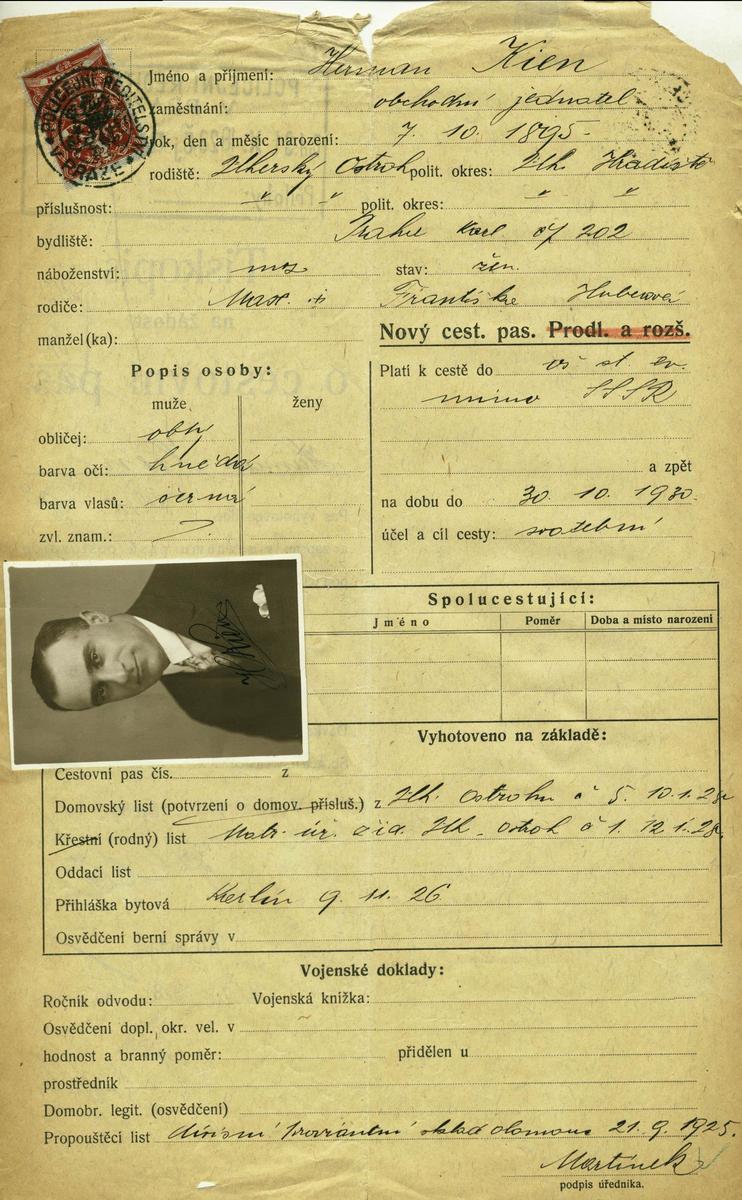 POLICEJNÍ ŘEDITELSTVÍ V PRAZE
Jméno a příjmení: Herman Kien
zaměstnání: obchodní jednatel
rok, den a měsíc narození: 7. 10. 1895
rodiště: Uherský Ostroh polit. okres: Uh. Hradiště
příslušnost: " " polit. okres: " "
bydliště: Praha čp 202
náboženství: moz stav: žen.
rodiče: Max. Františka Huberová
manžel(ka):
Nový cest. pas. Prodl. a rozš.
Popis osoby:
Platí k cestě do st. ev.
muže ženy
mimo SSSR
obličej: obly
barva očí: hnědá a zpět
barva vlasů: černá na dobu do 30. 10. 1930.
zvl. znam.: účel a cíl cesty: svatební
H Kien
Spolucestující:
Jméno Poměr Doba a místo narození
Vyhotoveno na základě:
Cestovní pas čís. z
Domovský list (potvrzení o domov. přísluš.) z Uh. Ostrohu č 5. 10.1.28
Křestní (rodný) list Matr. úř. žid. Uh. Ostroh č 1. 12 1.28.
Oddací list
Přihláška bytová Karlín 9. 11. 26
Osvědčení berní správy v
Vojenské doklady:
Ročník odvodu: Vojenská knížka:
Osvědčení dopl. okr. vel. v
hodnost a branný poměr: přidělen u
prostředník
Domobr. legit. (osvědčení)
Propouštěcí list divisní proviantní sklad Olomouc 21. 9. 1925.
Martínek
podpis úředníka.